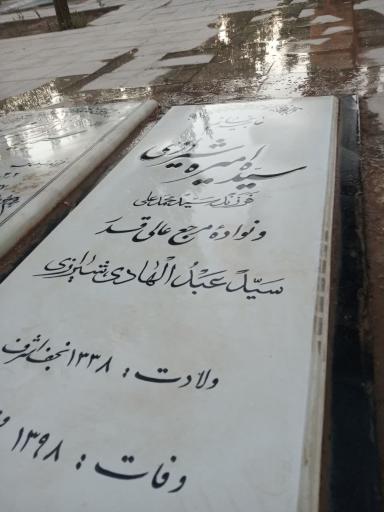 سیده امیره شیرازی
فرزند سید محمد علی
و نوادهٔ مرجع عالی قدر
سیّد عَبْدُ الْهادی شیرازی
ولادت : ۱۳۳۸ نجف اشرف
وفات : ۱۳۹۸